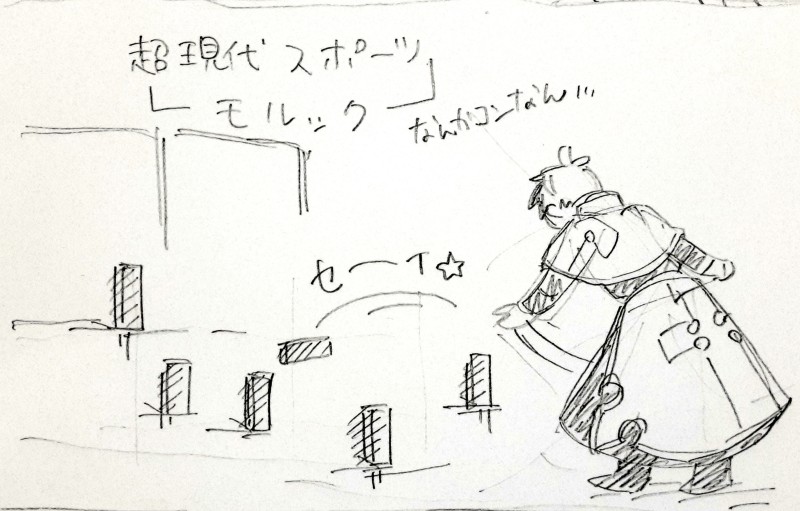 超現代スポーツ
モルック
なんかコンなん…
セーイ☆